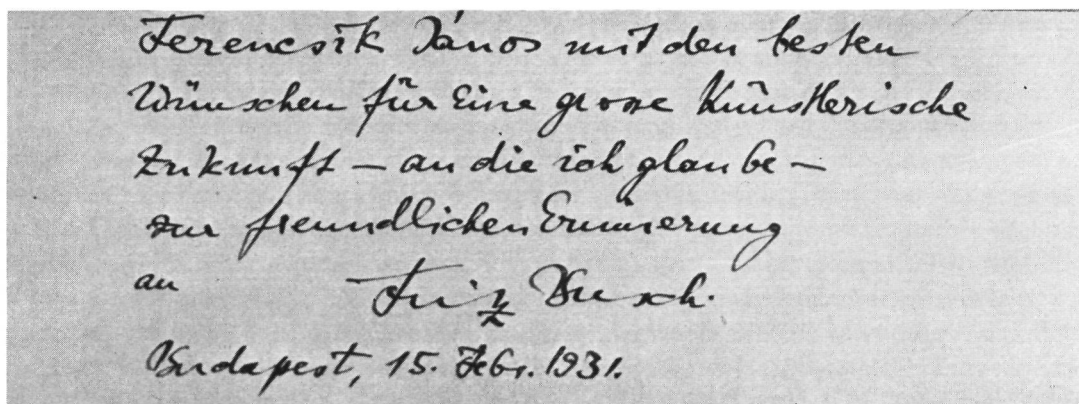 Ferencsik János mit den besten
Wünschen für eine grosse künstlerische
Zukunft – an die ich glaube –
zur freundlichen Erinnerung
an Fritz Busch.
Budapest, 15. Febr. 1931.